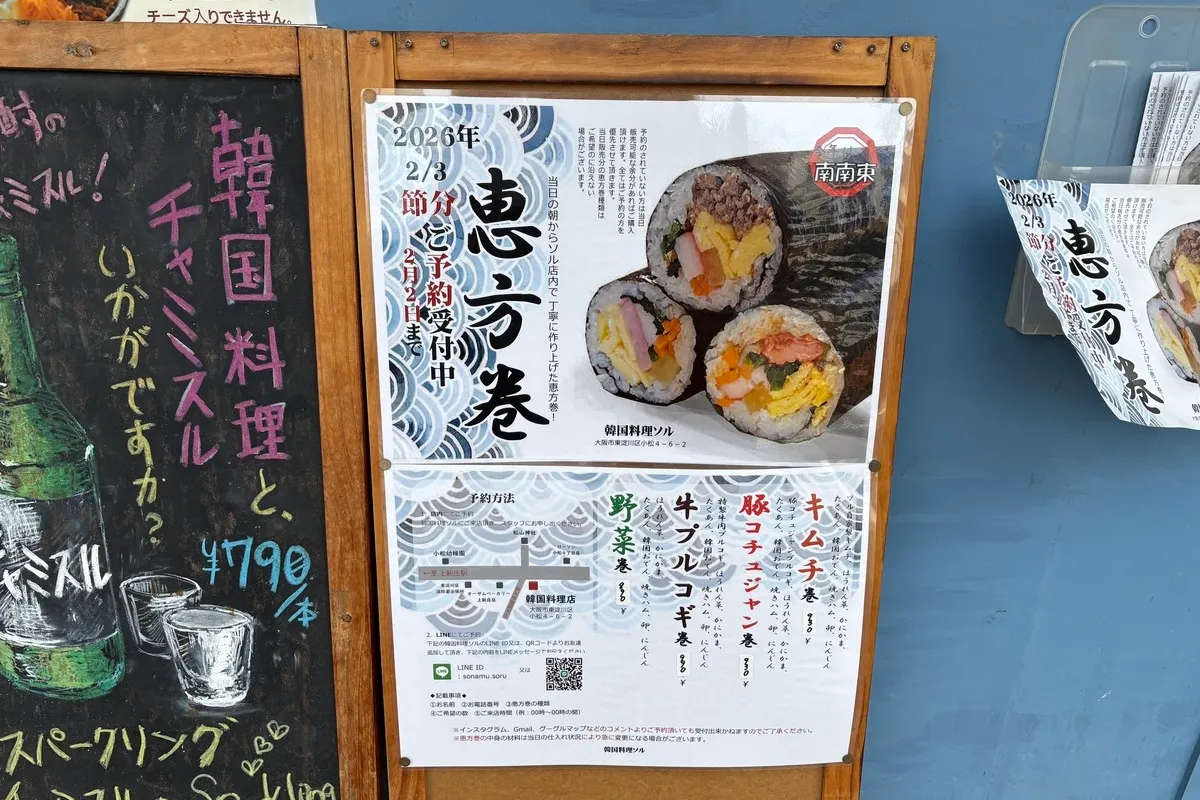 チーズ入りできません。
酎の
ミスル!
韓国料理と、
チャミスル
いかがですか?
¥790/本
チャミスル
スパークリング
2026年
2/3
節分
ご予約受付中
2月2日まで
恵方巻
当日の朝からソル店内で丁寧に作り上げた恵方巻!
予約のされていない方は当日
販売可能な余分があればご購入
頂けます。全てはご予約の方を
優先させて頂きます。
当日販売分の恵方巻種類は
ご希望のに沿えない
場合がございます。
南南東
韓国料理ソル
大阪市東淀川区小松4-6-2
予約方法
1. 店内にてご予約
韓国料理ソルにご来店頂き、スタッフにお申し出ください。
松山神社
小松幼稚園
ローソン
小松4丁目店
←至 上新庄駅
東淀川区
オーザムベーカリー
上新庄店
韓国料理店
大阪市東淀川区
小松4-6-2
2. LINEにてご予約
下記の韓国料理ソルのLINE ID又は、QRコードよりお友達
追加して頂き、下記の内容をLINEメッセージでお伝え下さい。
LINE
LINE ID
: sonamu.soru
又は
◆記載事項◆
①お名前 ②お電話番号 ③恵方巻の種類
④ご希望の数 ⑤ご来店時間(例:00時〜00時の間)
キムチ巻 930¥
ソル自家製キムチ、ほうれん草、かにかま、
たくあん、韓国おでん、焼きハム、卵、にんじん
豚コチュジャン巻 930¥
豚コチュジャンプルコギ、ほうれん草、かにかま、
たくあん、韓国おでん、焼きハム、卵、にんじん
牛プルコギ巻 990¥
特製牛肉プルコギ、
ほうれん草、かにかま、
たくあん、韓国おでん、焼きハム、卵、にんじん
野菜巻
※インスタグラム、Gmail、グーグルマップなどのコメントよりご予約頂いても受付出来かねますのでご了承ください。
※恵方巻の中身の材料は当日の仕入れ状況により急に変更になる場合がございます。
韓国料理ソル
2026年
2/3
節分
ご予約受付中
2月2日まで
恵方巻